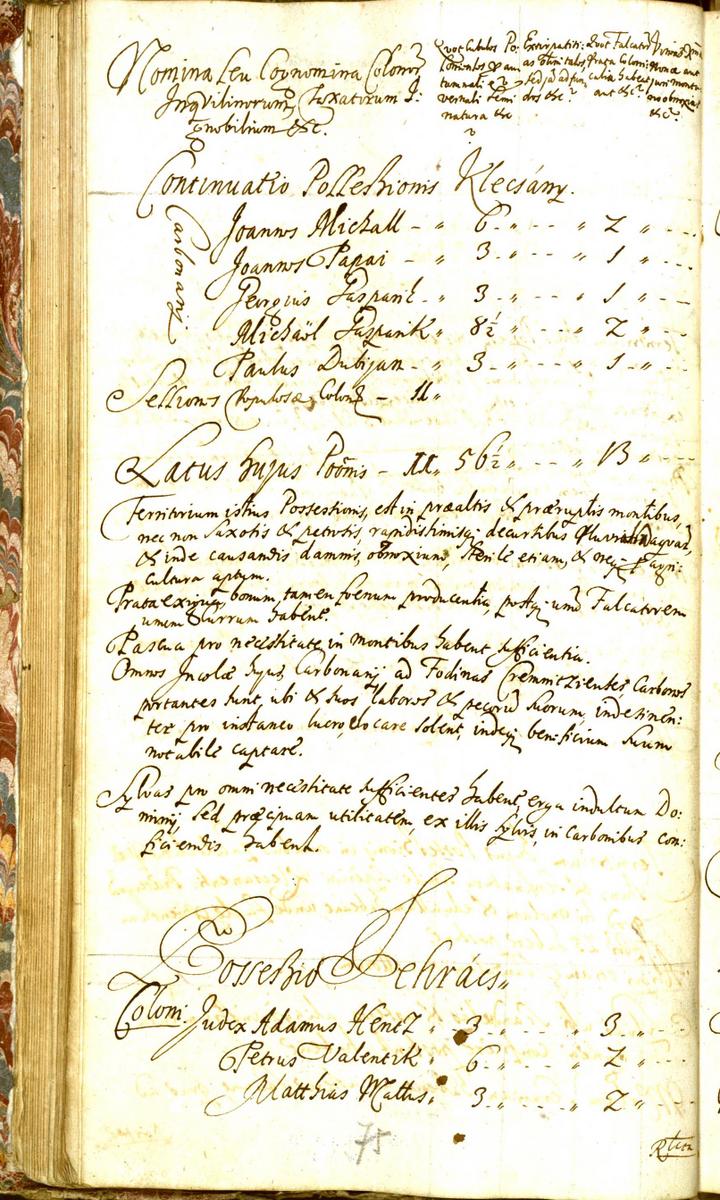 Nomina seu Cognomina Colonorum
Inqvilinorum, Taxatorum I:
nobilium &c.
Quot Cubulos Po:
Extirpatiti:
Quot Falcatorum
natura &c
?
Continuatio Possessionis Klecsány.
Carbonarij
Joannes Michall - „ 6 - „ - - - „ 2 „ - - -
Joannes Papai - „ 3 - „ - - - „ 1 „ - - -
Georgius Gasparik - „ 3 - „ - - - „ 1 „ - - -
Michaël Gasparik „ 8½ „ - - - „ 2 „ - - -
Paulus Dubijan - „ 3 - „ - - - „ 1 „ - - -
Sessiones Populosæ Colon - 11 „
Latus hujus Poõnis - 11 „ 56½ „ - - - „ 13 „ - - -
Territorium istius Possessionis, est in præaltis & præruptis montibus,
nec non saxosis & petrosis, rapidissimisq; decursibus Pluvialium aquarum,
& inde causandis damnis, obnoxium, sterile etiam, & neq; pro agri:
cultura aptum.
Prata exigua bonum, tamen foenum producentia, post unum Falcatorem
unum Currum habent.
Pascua pro necessitate in montibus habent sufficientia.
Omnes Incolæ hujus Carbonarij ad Fodinas Cremnitzienses, Carbones
portantes sunt, ubi & suos labores & pecorum suorum, indesinen:
ter pro instaneo lucro, elocare solent, indeq; beneficium suum
notabile captare.
Sylvas pro omni necessitate sufficientes habent, erga indultum Do:
minij, sed præcipuam utilitatem, ex illis sylvis, in Carbonibus con:
ficiendis habent.
Possessio Lehrács „
Coloni Judex Adamus Hencz „ 3 - „ - - - „ 3 „ - - -
Petrus Valentik „ 6 „ - - - „ 2 „ - - -
Matthias Mattus „ 3 „ - - - „ 2 „ - - -
75